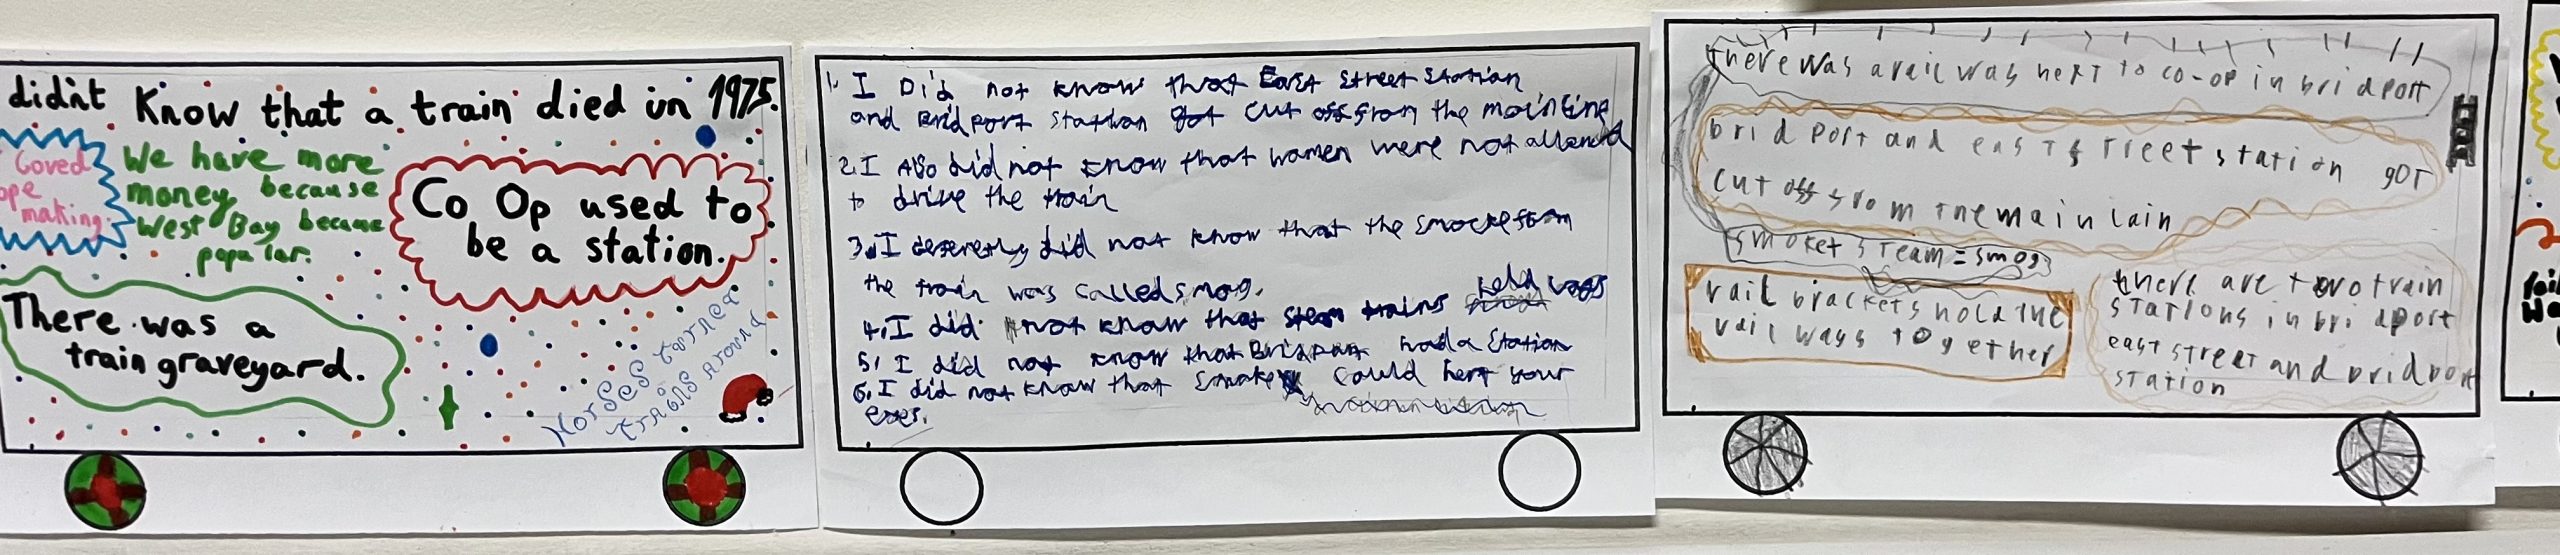 didnt Know that a train died in 1975.
Loved
ope
making.
We have more
money because
West Bay became
popular.
Co Op used to
be a station.
There was a
train graveyard.
Horses turned
trains around
1. I Did not know that East Street Station
and Bridport Station got cut off from the mainline
2. I Also did not know that women were not allowed
to drive the train
3. I did not know that the smocke from
the train was called smog.
4. I did not know that steam trains held
5. I did not know that Bridport had a Station
6. I did not know that Smoke could hert your
eyes.
there was a rail was next to co-op in bridport
brid port and east street station got
cut off from the main lain
smoke + steam = smog
rail brackets hold the
rail ways together
there are two train
stations in bridport
east street and bridport
station